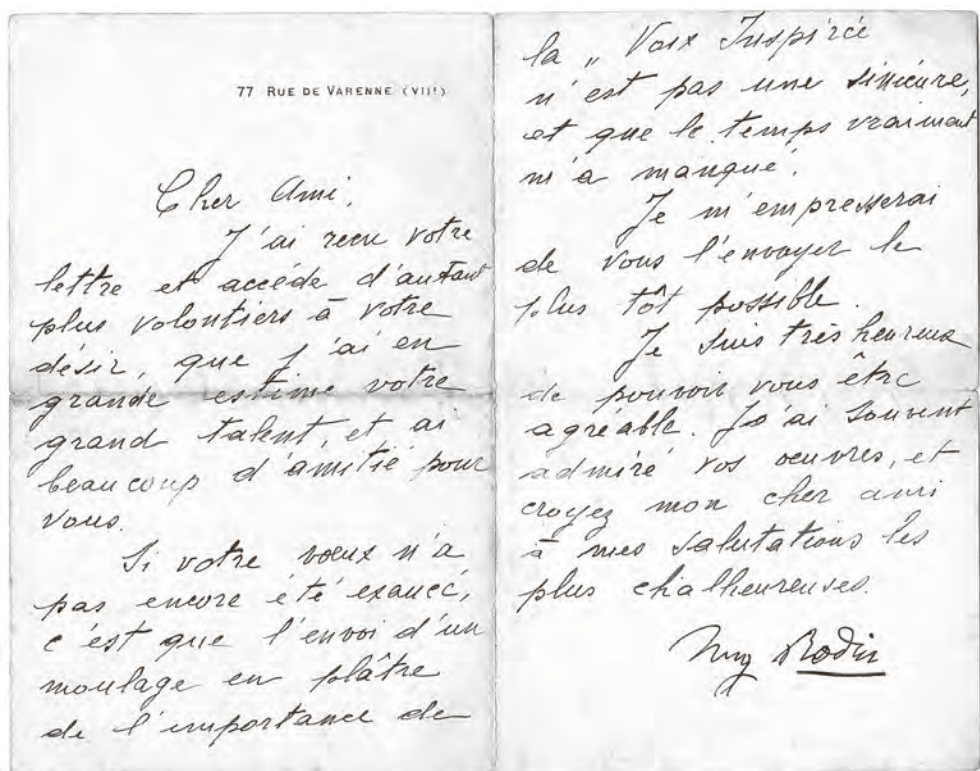 77 RUE DE VARENNE (VIIe)
Cher Ami,
J'ai recu votre
lettre et accède d'autant
plus volontiers à votre
désir, que j'ai en
grande estime votre
grand talent, et ai
beaucoup d'amitié pour
vous.
Si votre vœux n'a
pas encore été exaucé,
c'est que l'envoi d'un
moulage en plâtre
de l'importance de
la „ Voix Inspirée
n'est pas une sinécure,
et que le temps vraiment
m'a manqué.
Je m'empresserai
de vous l'envoyer le
plus tôt possible.
Je suis très heureux
de pouvoir vous être
agréable. J'ai souvent
admiré vos oeuvres, et
croyez mon cher ami
à mes salutations les
plus chalheureuses.
Aug Rodin